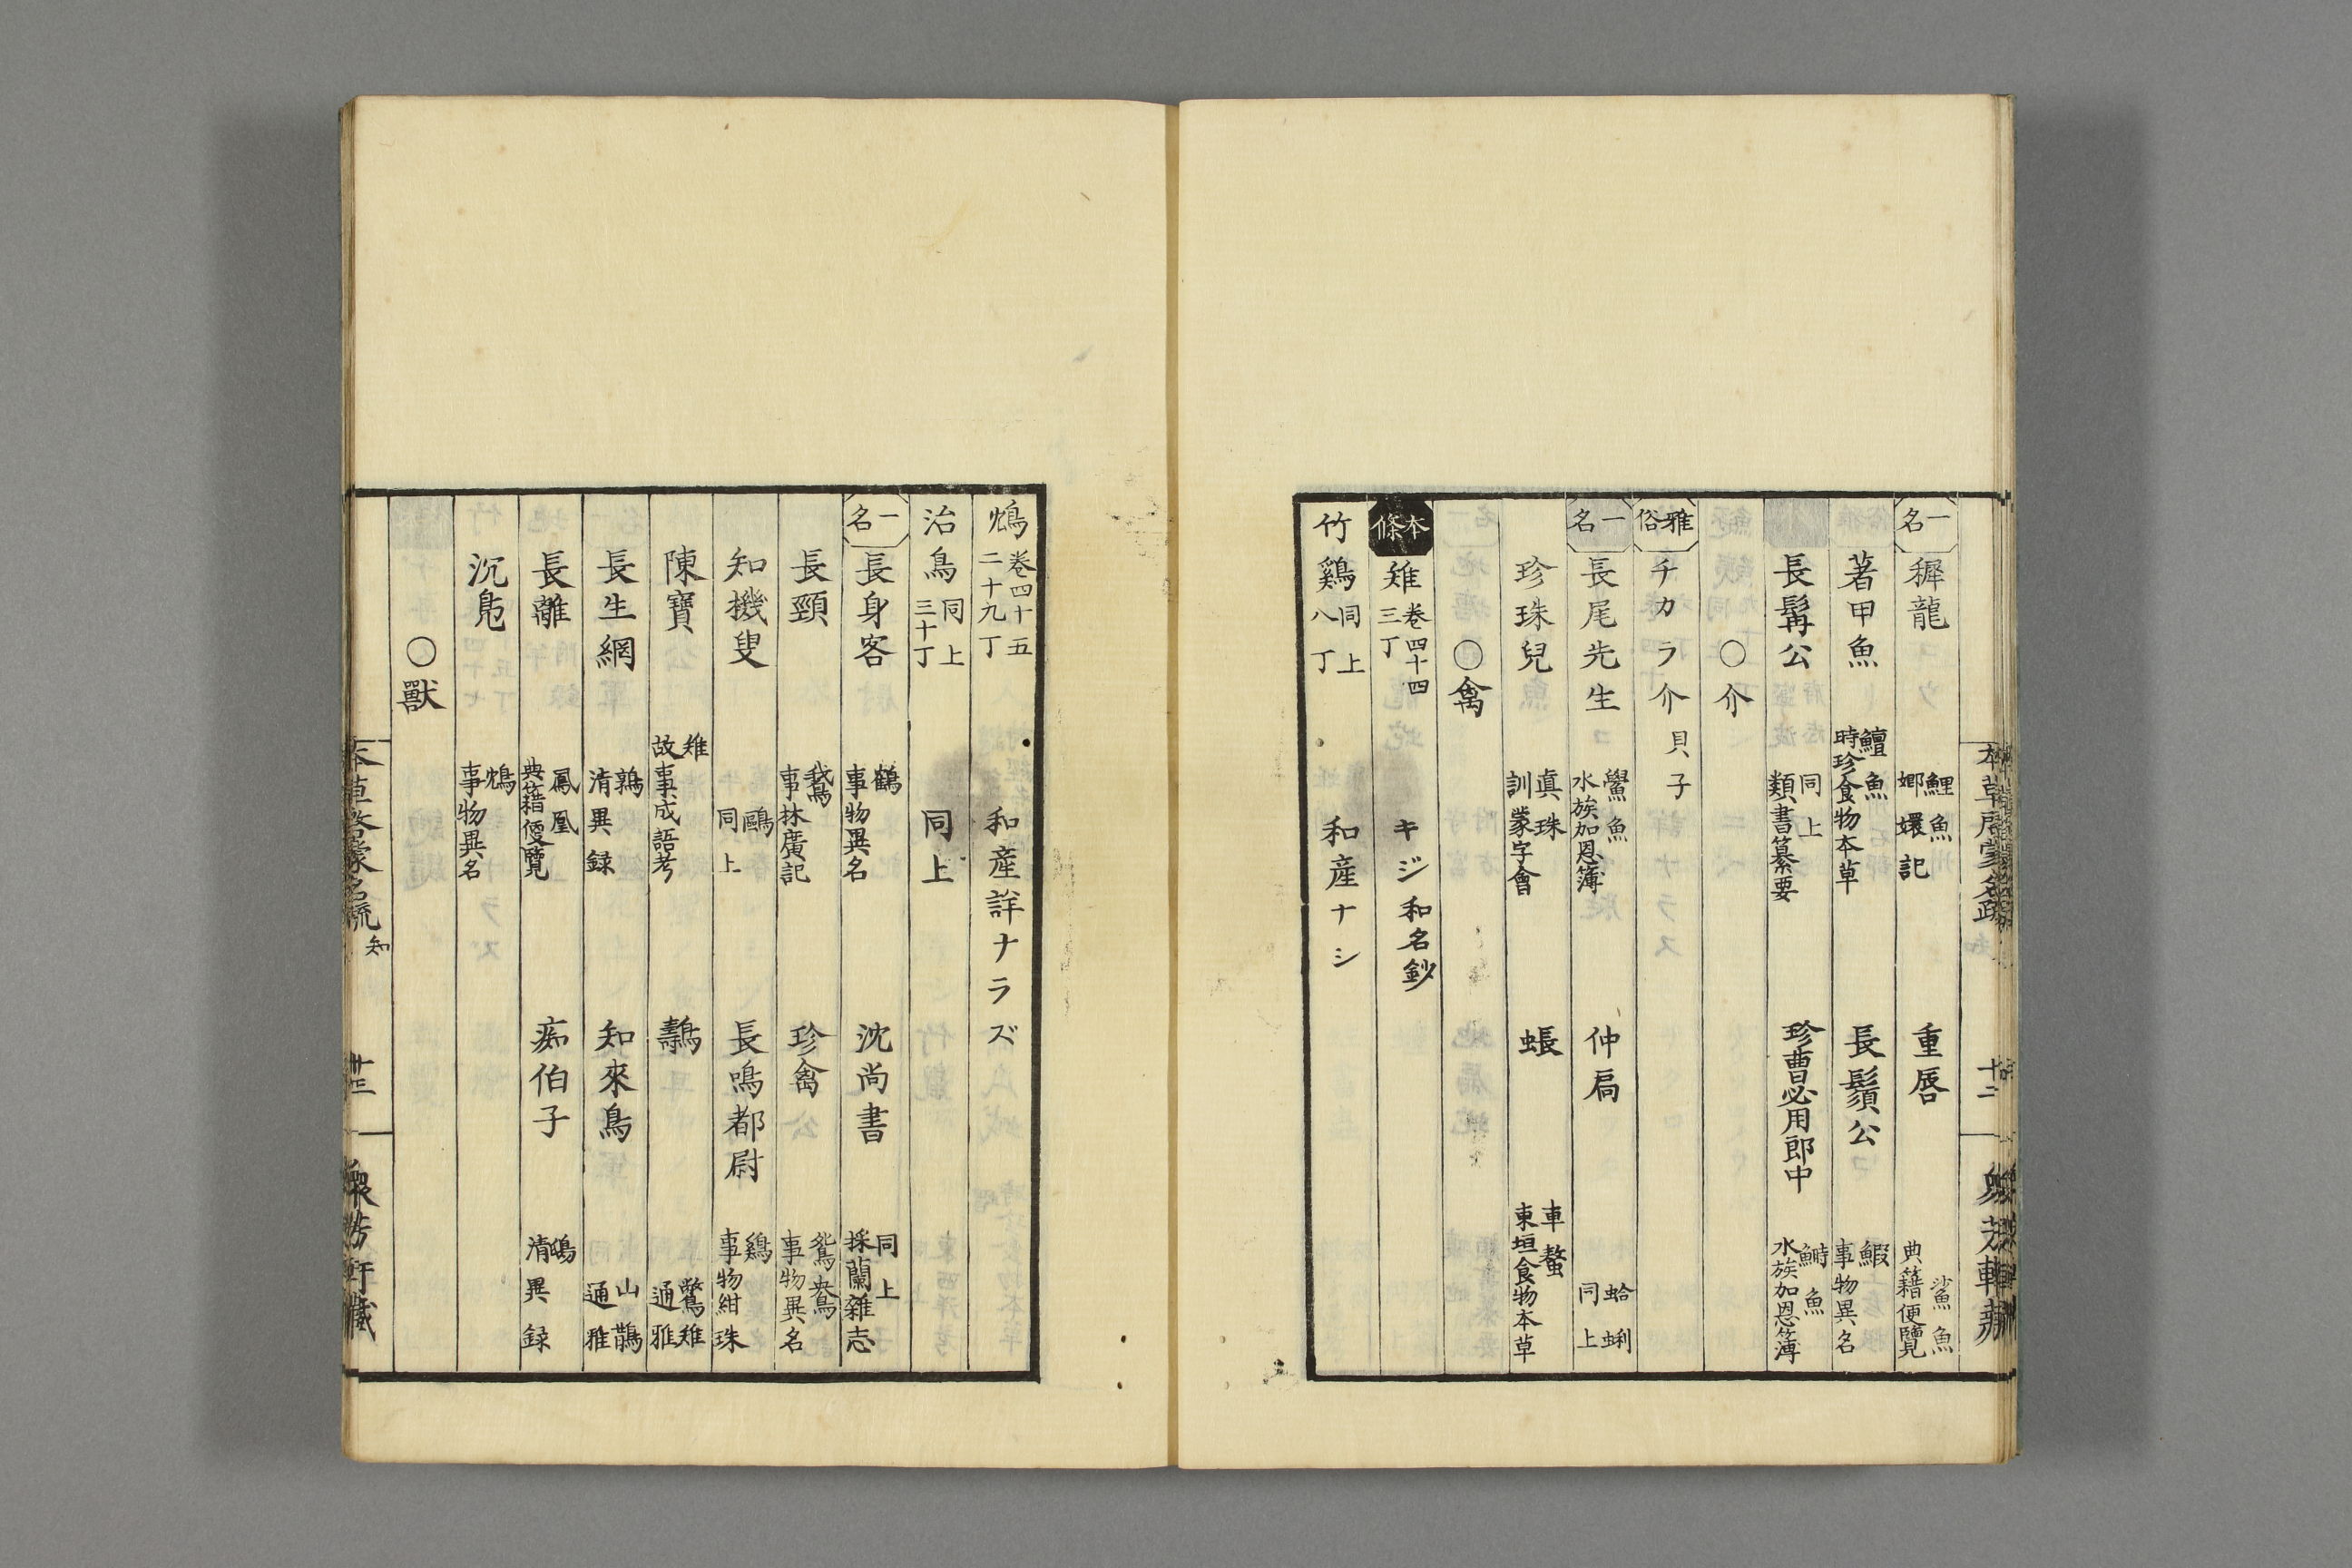 一名 穉龍 鯉魚 嫏嬛記 重唇 鯊魚 典籍便覽
著甲魚 鱣魚 時珍食物本草 長鬚公 鰕 事物異名
長髯公 同上 類書纂要 珍曹必用郎中 鰣魚 水族加恩簿
○介
雅俗 チカラ介 貝子
一名 長尾先生 鱟魚 水族加恩簿 仲扃 蛤蜊 同上
珍珠兒 眞珠 訓蒙字會 蜄 車螯 東垣食物本草
○禽
本條 雉 卷四十四 三丁 キジ 和名鈔
竹鷄 同上 八丁 和産ナシ
鴆 卷四十五 二十九丁 和産詳ナラズ
治鳥 同上 三十丁 同上
一名 長身客 鶴 事物異名 沈尚書 同上 採蘭雜志
長頸 鵞 事林廣記 珍禽 鴛鴦 事物異名
知機叟 鷗 同上 長鳴都尉 鷄 事物紺珠
陳寶 雉 故事成語考 鷫 鷩雉 通雅
長生網 鶉 清異録 知來鳥 山鵲 通雅
長離 鳳凰 典籍便覽 痴伯子 鴟 清異録
沉鳧 鴆 事物異名
○獸
本草啓蒙名疏 知 十三 衆芳軒藏